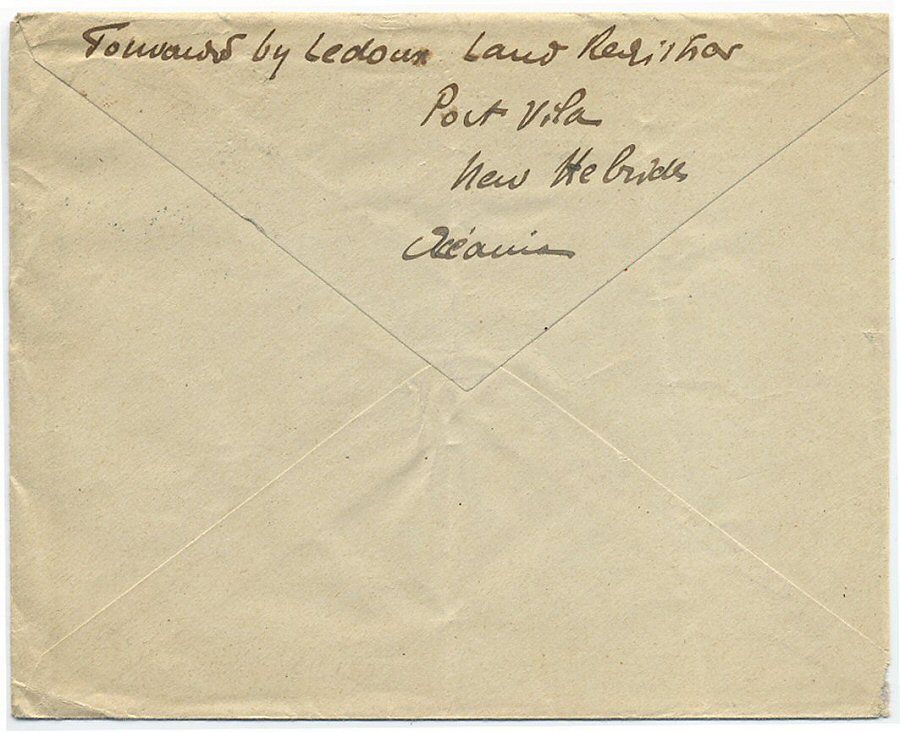 Forward by Ledoux Land Registrar
Port Vila
New Hebrides
Océanie